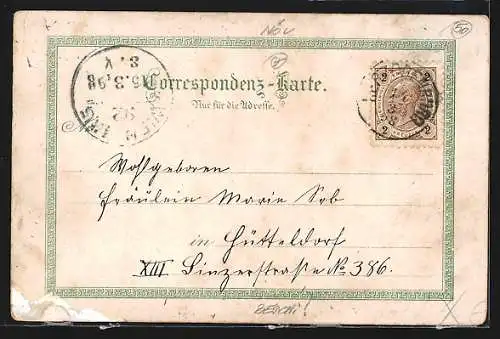 Nov
50
Correspondenz-Karte.
Nur für die Adresse.
15.3.98
8.V
WIEN
2 2
2 2
Wohlgeboren
Fräulein Marie Sob
in Hütteldorf
XIII Linzerstraße No 386.